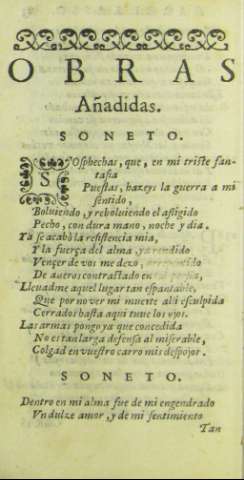 OBRAS
Añadidas.
SONETO.
SOsphechas, que, en mi triste fan-
tasia
Puestas, hazeys la guerra a mi
sentido,
Boluiendo, y reboluiendo el afligido
Pecho, con dura mano, noche y dia.
Ya se acabò la resistencia mia,
Y la fuerça del alma, ya rendido
Vençer de vos me dexo, arrepentido
De aueros contrastado en tal porfia,
Lleuadme aquel lugar tan espantable,
Que por no ver mi muerte alli esculpida
Cerrados hasta aqui tuue los ojos.
Las armas pongo ya que concedida
No es tan larga defensa al miserable,
Colgad en vuestro carro mis despojos.
SONETO.
Dentro en mi alma fue de mi engendrado
Vn dulze amor, y de mi sentimiento
Tan